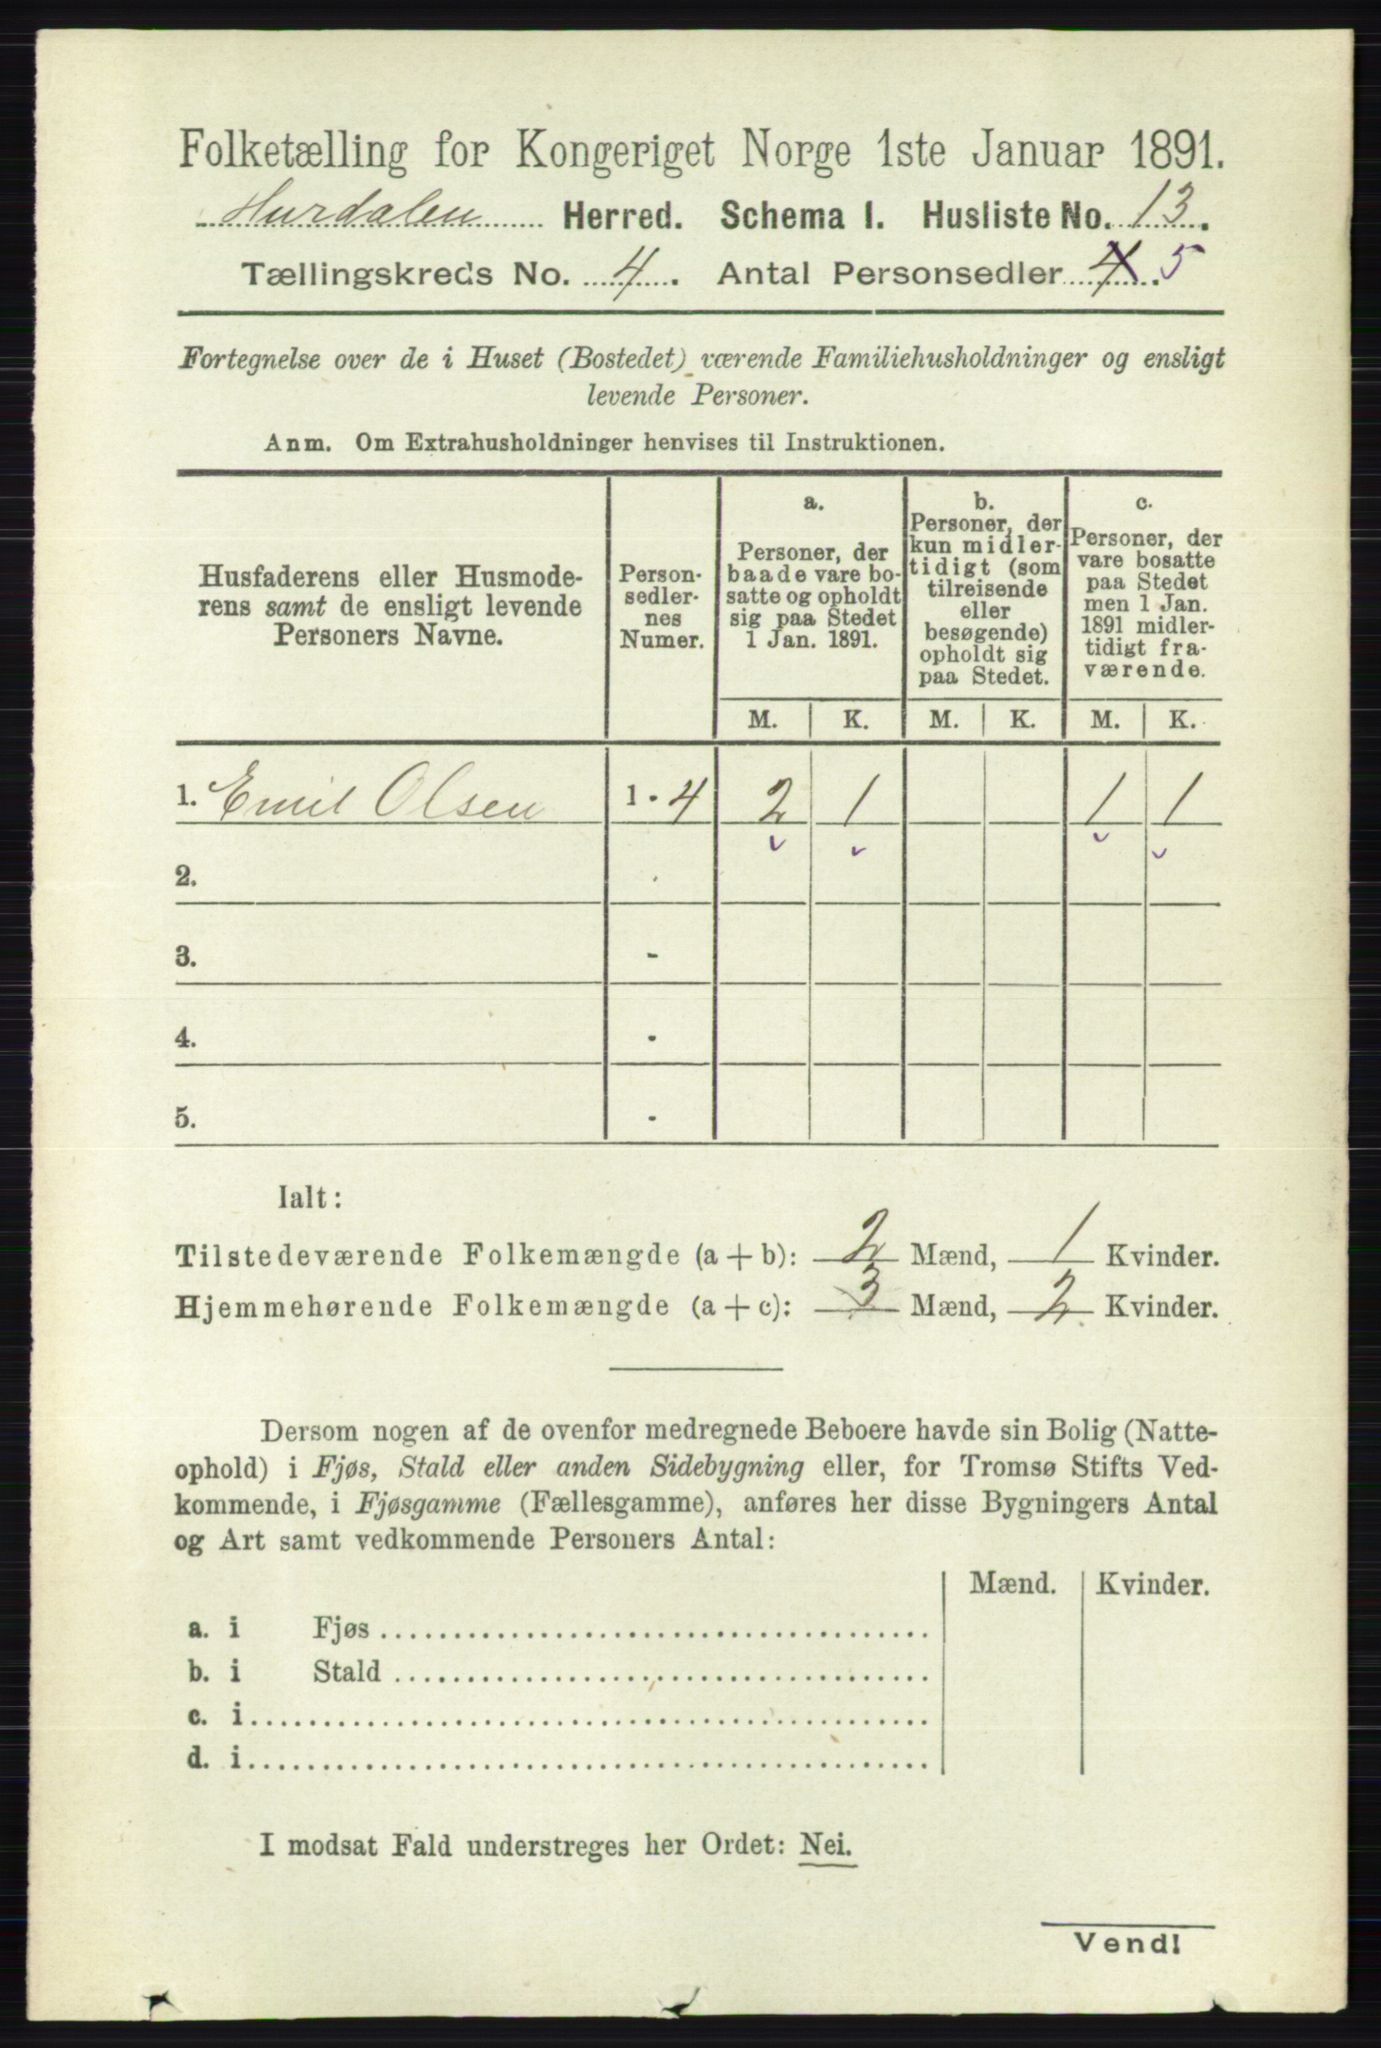 Folketælling for Kongeriget Norge 1ste Januar 1891.
Hurdalen Herred. Schema I. Husliste No. 13.
Tællingskreds No. 4. Antal Personsedler 4 5
Fortegnelse over de i Huset (Bostedet) værende Familiehusholdninger og ensligt
levende Personer.
Anm. Om Extrahusholdninger henvises til Instruktionen.
Husfaderens eller Husmode-
rens samt de ensligt levende
Personers Navne.
Person-
sedler-
nes
Numer.
a.
Personer, der
baade vare bo-
satte og opholdt
sig paa Stedet
1 Jan. 1891.
b.
Personer, der
kun midler-
tidigt (som
tilreisende
eller
besøgende)
opholdt sig
paa Stedet.
c.
Personer, der
vare bosatte
paa Stedet
men 1 Jan.
1891 midler-
tidigt fra-
værende.
M. K. M. K. M. K.
1. Emil Olsen 1 - 4 2 1 1 1
2.
3. -
4. -
5. -
Ialt:
Tilstedeværende Folkemængde (a + b): 2 Mænd, 1 Kvinder.
Hjemmehørende Folkemængde (a + c): 3 Mænd, 2 Kvinder.
Dersom nogen af de ovenfor medregnede Beboere havde sin Bolig (Natte-
ophold) i Fjøs, Stald eller anden Sidebygning eller, for Tromsø Stifts Ved-
kommende, i Fjøsgamme (Fællesgamme), anføres her disse Bygningers Antal
og Art samt vedkommende Personers Antal:
Mænd. Kvinder.
a. i Fjøs
b. i Stald
c. i
d. i
I modsat Fald understreges her Ordet: Nei.
Vend!